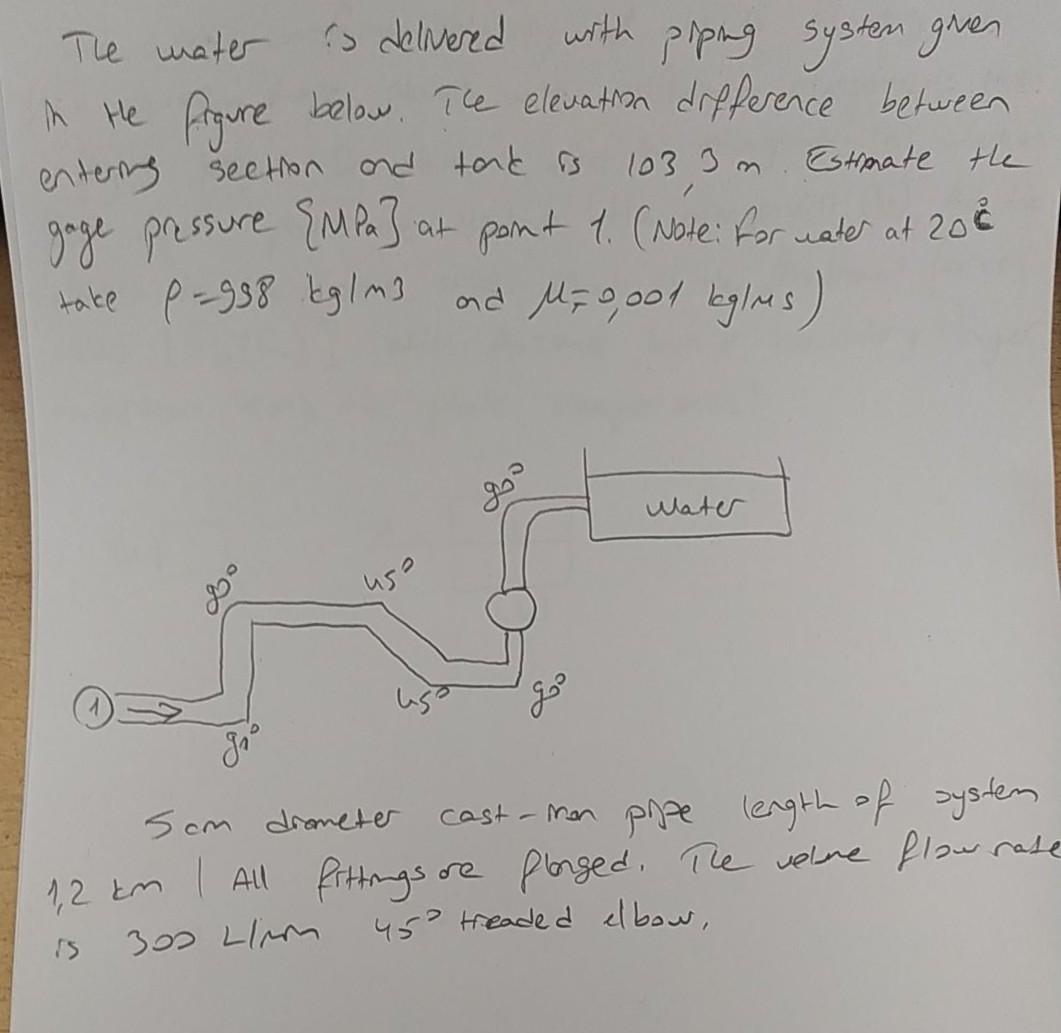 The water is delivered with piping system given
in the figure below. The elevation difference between
entering section and tank is 103,3 m. Estimate the
gage pressure {MPa} at point 1. (Note: for water at 20°C
take ρ=998 kg/m3 and μ=0,001 kg/ms)
90°
Water
90°
45°
1
45°
90°
90°
5cm diameter cast-iron pipe length of system
1,2 km | All fittings are flanged. The volume flow rate
is 300 L/min 45° threaded elbow,